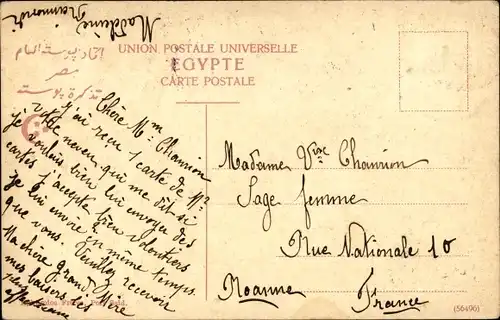 Madeleine
UNION POSTALE UNIVERSELLE
EGYPTE
CARTE POSTALE
اتحاد پوسته العام
مصر
تذكرة پوسته
Chère Mme Chanrion
J'ai reçu 1 carte de Mr
votre neveu qui me dit si
je voulais bien lui envoyer des
cartes j'accepte bien volontiers
je lui envoie en même temps
que vous. Veuillez recevoir
Ma chère grand Mère
mes baisers les plus
affectueux
Madame Vve Chanrion
Sage femme
Rue Nationale 10
Roanne France
(56496)